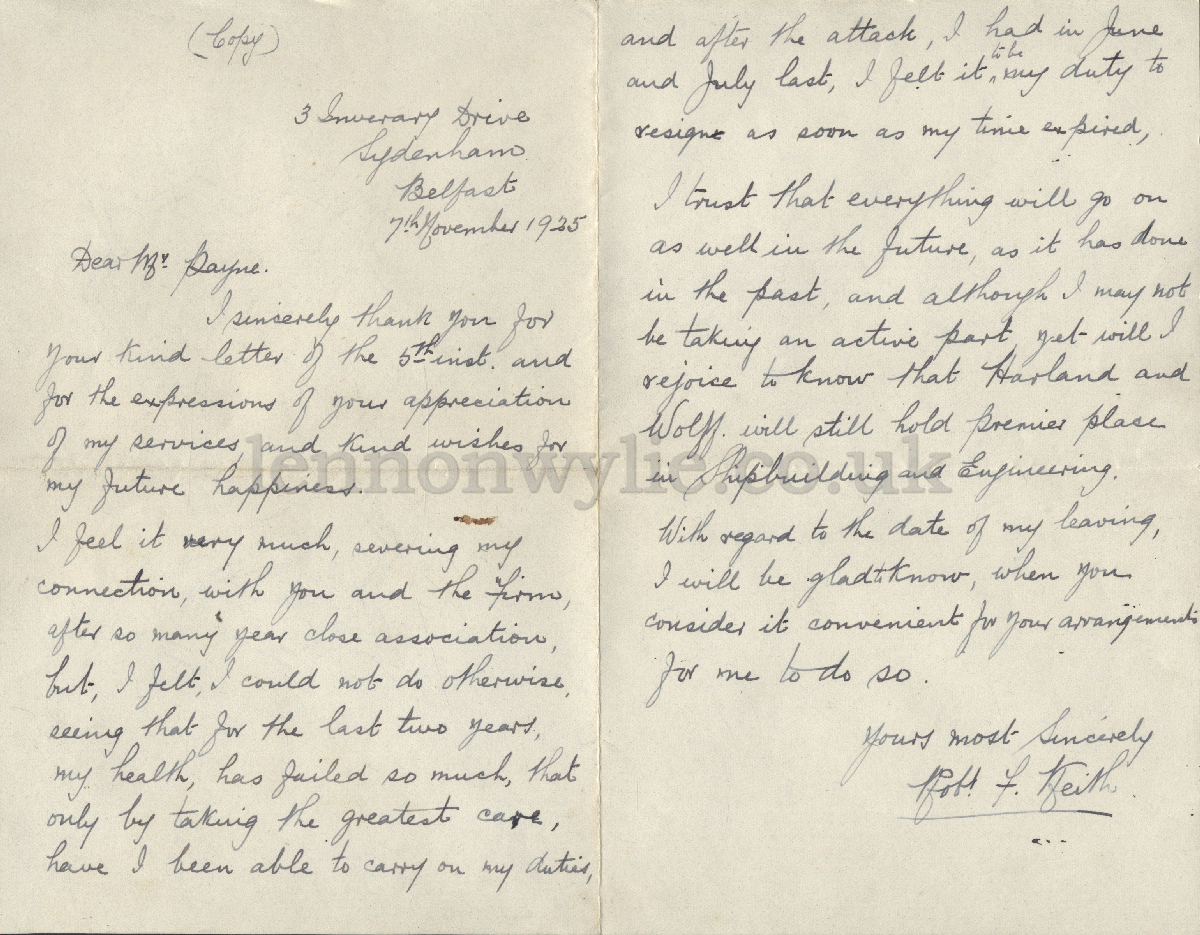 (Copy)
3 Inverary Drive
Sydenham
Belfast
7th November 1925
Dear Mr. Payne.
I sincerely thank you for
your kind letter of the 5th inst. and
for the expressions of your appreciation
of my services, and kind wishes for
my future happiness.
I feel it very much, severing my
connection, with you and the firm,
after so many year close association,
but, I felt, I could not do otherwise,
seeing that for the last two years,
my health, has failed so much, that
only by taking the greatest care,
have I been able to carry on my duties,
and after the attack, I had in June
and July last, I felt it to be my duty to
resign as soon as my time expired,
I trust that everything will go on
as well in the future, as it has done
in the past, and although I may not
be taking an active part, yet will I
rejoice to know that Harland and
Wolff. will still hold premier place
in Shipbuilding and Engineering.
With regard to the date of my leaving,
I will be glad to know, when you
consider it convenient for your arrangements
for me to do so.
Yours most Sincerely
Robt. F. Keith
lennonwylie.co.uk